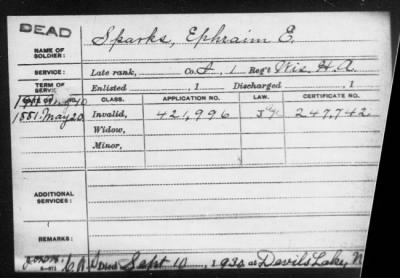 DEAD
NAME OF SOLDIER: Sparks, Ephraim E.
SERVICE: Late rank, Co. I, 1 Reg't Wis. H. A.
TERM OF SERVICE: Enlisted , 1 Discharged , 1
CLASS. APPLICATION NO. LAW. CERTIFICATE NO.
1881 May 20 Invalid, 421,996 247,742
Widow,
Minor,
ADDITIONAL SERVICES:
REMARKS:
Died Sept 10, 1930 at Devils Lake, N